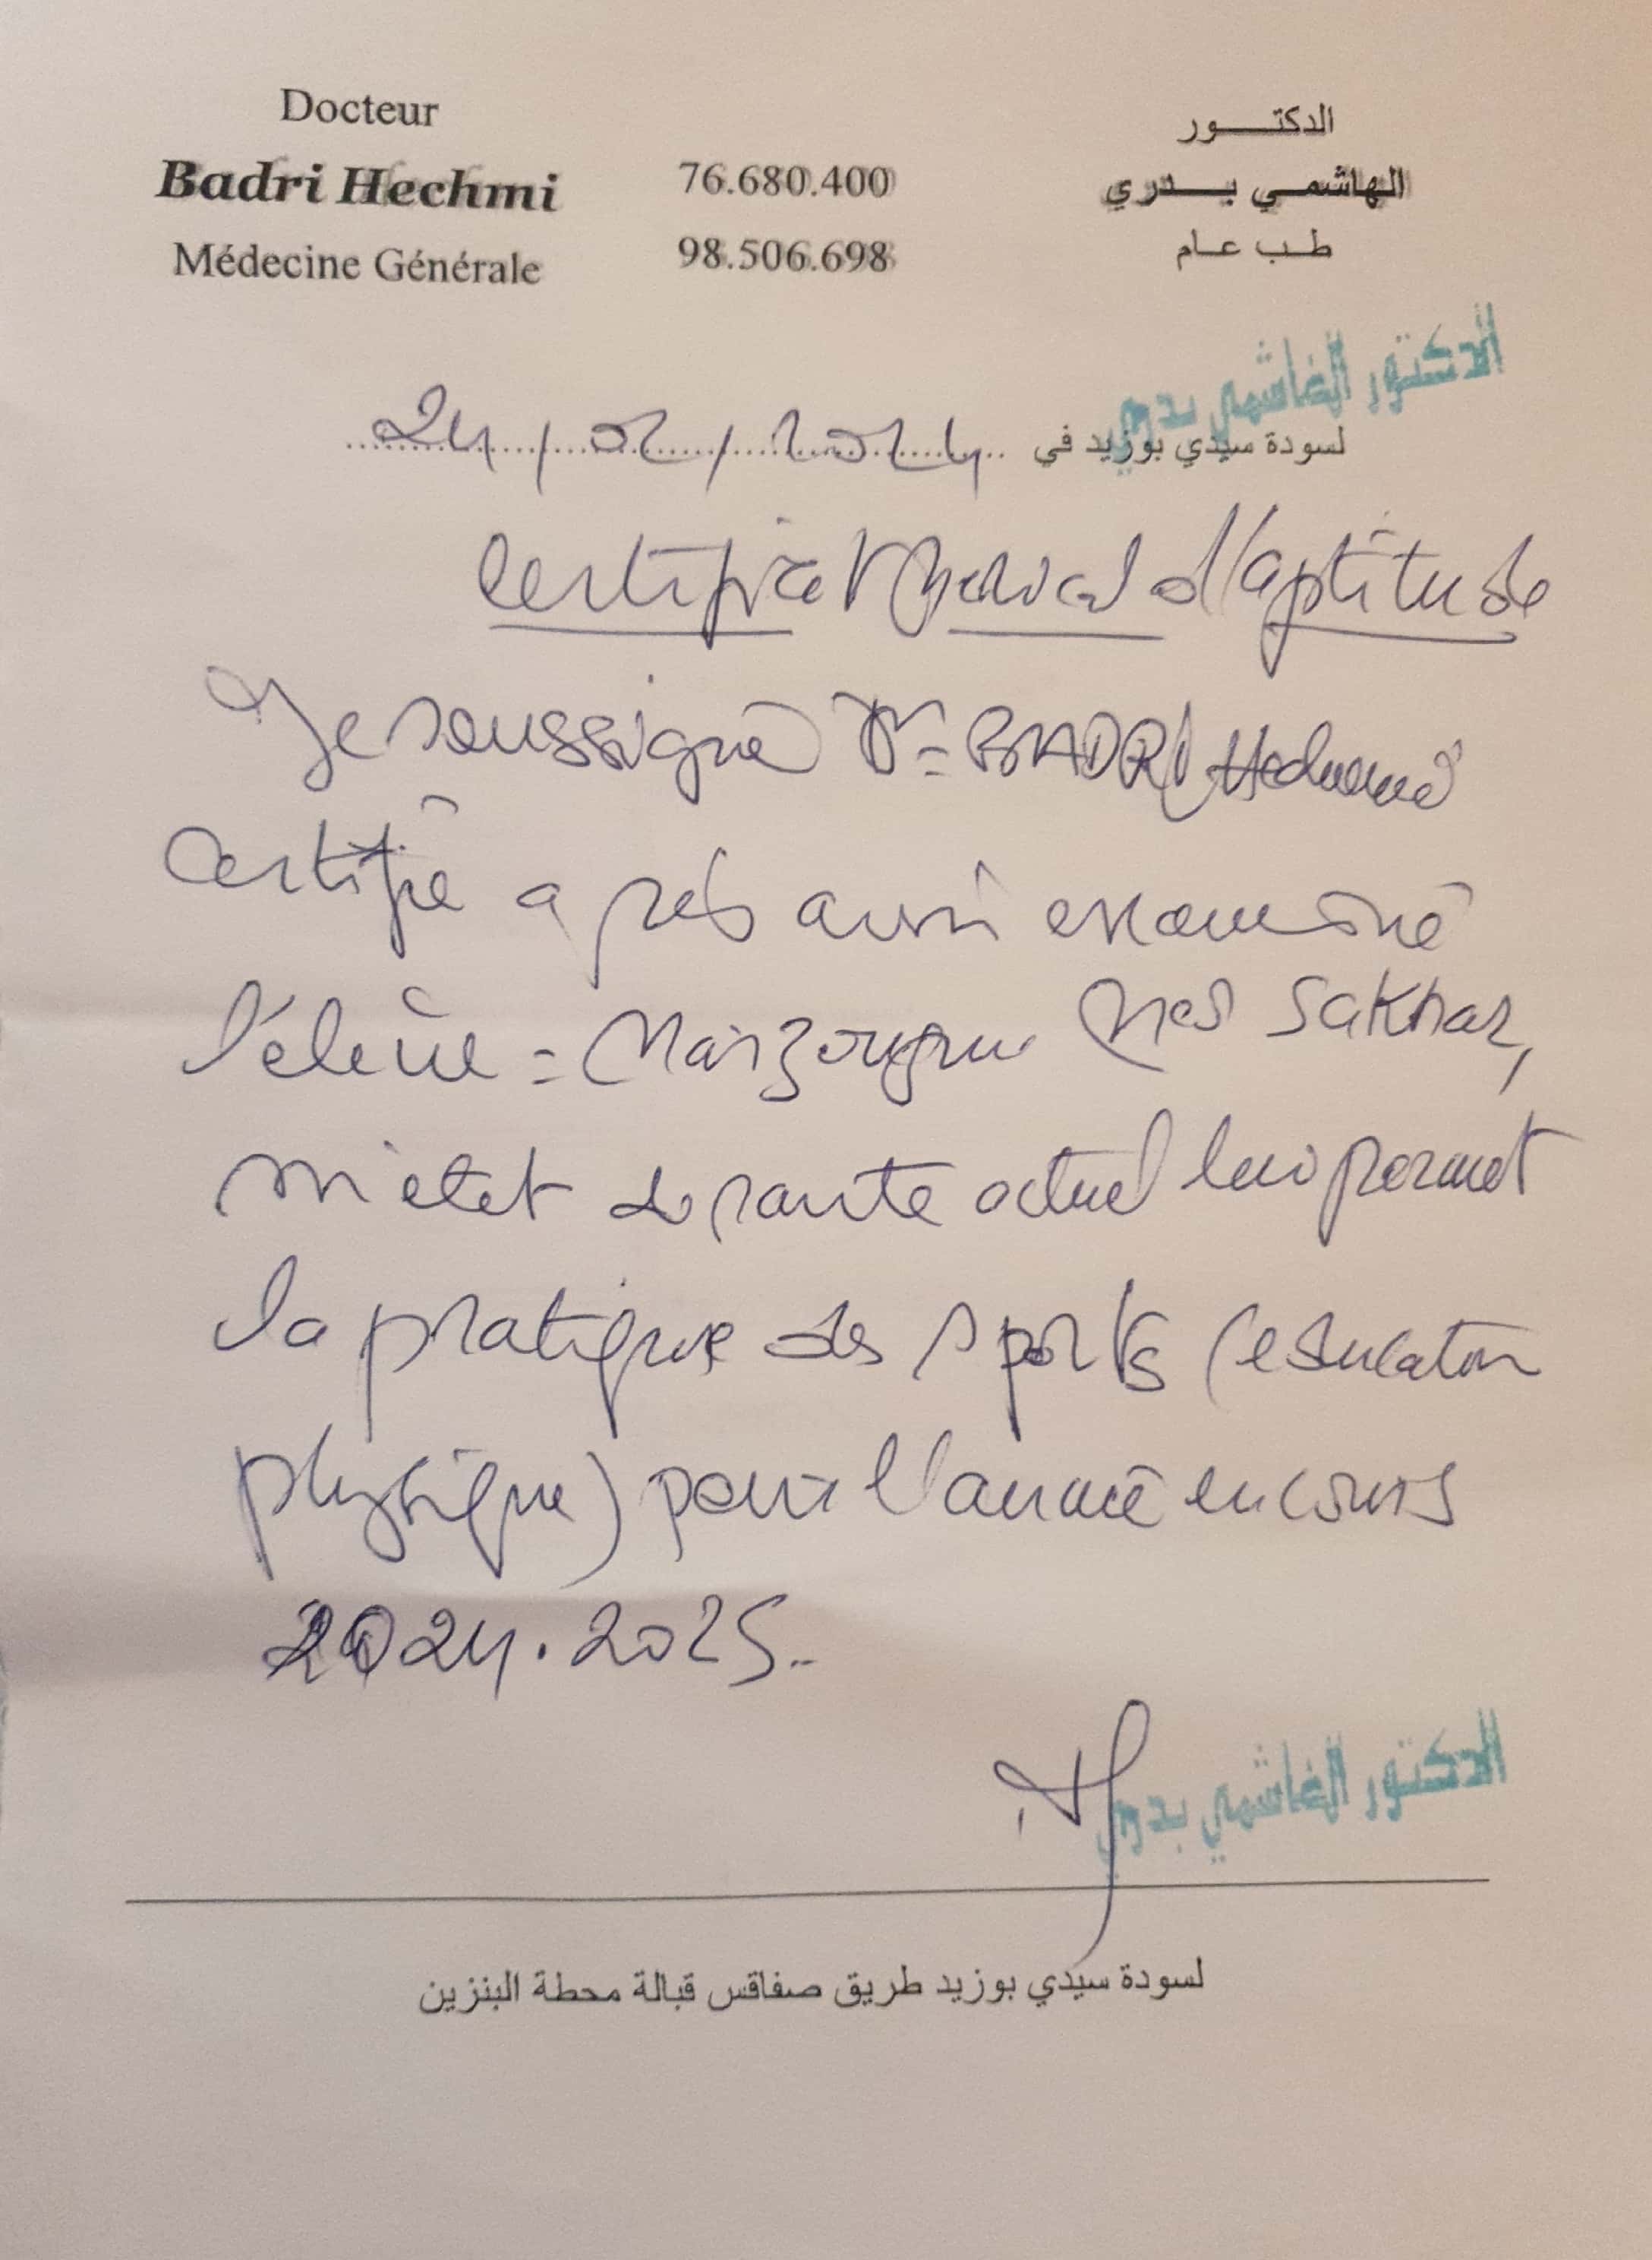 Docteur
Badri Hechmi
Médecine Générale
76.680.400
98.506.698
الدكتور
الهاشمي بدري
طب عام
الدكتور الهاشمي بدري
لسودة سيدي بوزيد في 24/02/2024
Certificat Medical d'aptitude
Je soussigné Dr = BADRI Hechmi
certifie après avoir examiné
l'élève = Marzougui Med Sakhar,
état de santé actuel lui permet
la pratique des sports (education
physique) pour l'année en cours
2024.2025..
الدكتور الهاشمي بدري
لسودة سيدي بوزيد طريق صفاقس قبالة محطة البنزين